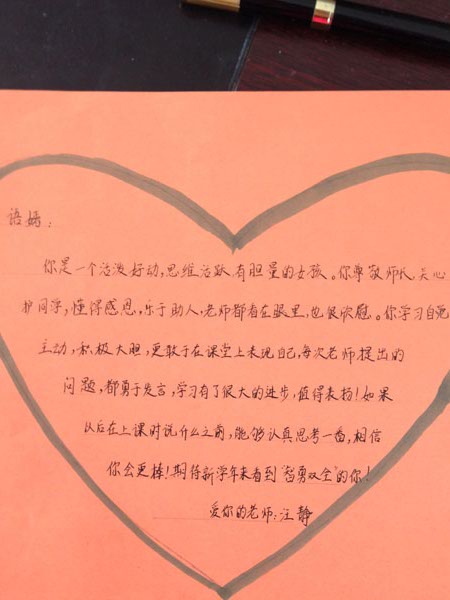 语嫣：
你是一个活泼好动，思维活跃，有胆量的女孩。你尊敬师长，关心
护同学，懂得感恩，乐于助人，老师都看在眼里，也很欣慰。你学习自觉
主动，积极大胆，更敢于在课堂上表现自己，每次老师提出的
问题，都勇于发言，学习有了很大的进步，值得表扬！如果
以后在上课时说什么之前，能够认真思考一番，相信
你会更棒！期待新学年来看到“智勇双全”的你！
爱你的老师：汪静